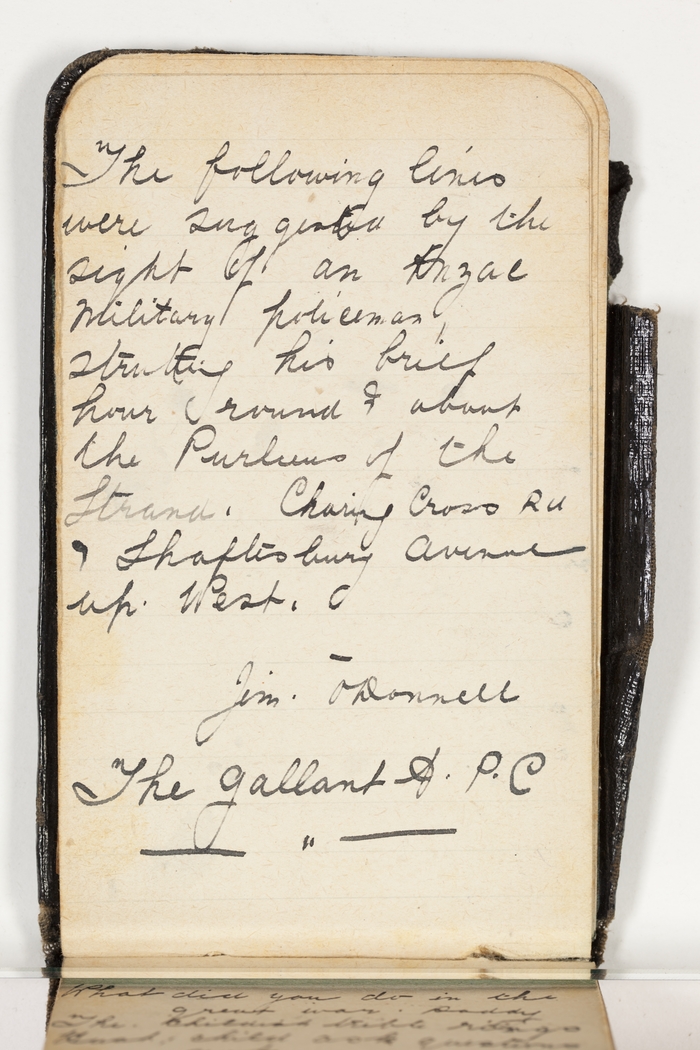 "The following lines
were suggested by the
sight of an Anzac
Military policeman,
strutting his brief
hour round & about
the Purlieus of the
Strand. Charing Cross Rd
& Shaftesbury Avenue
up West.
Jim. O'Donnell
"The Gallant A. P. C
"
What did you do in the
great war. Daddy
The. childish
child ask questions